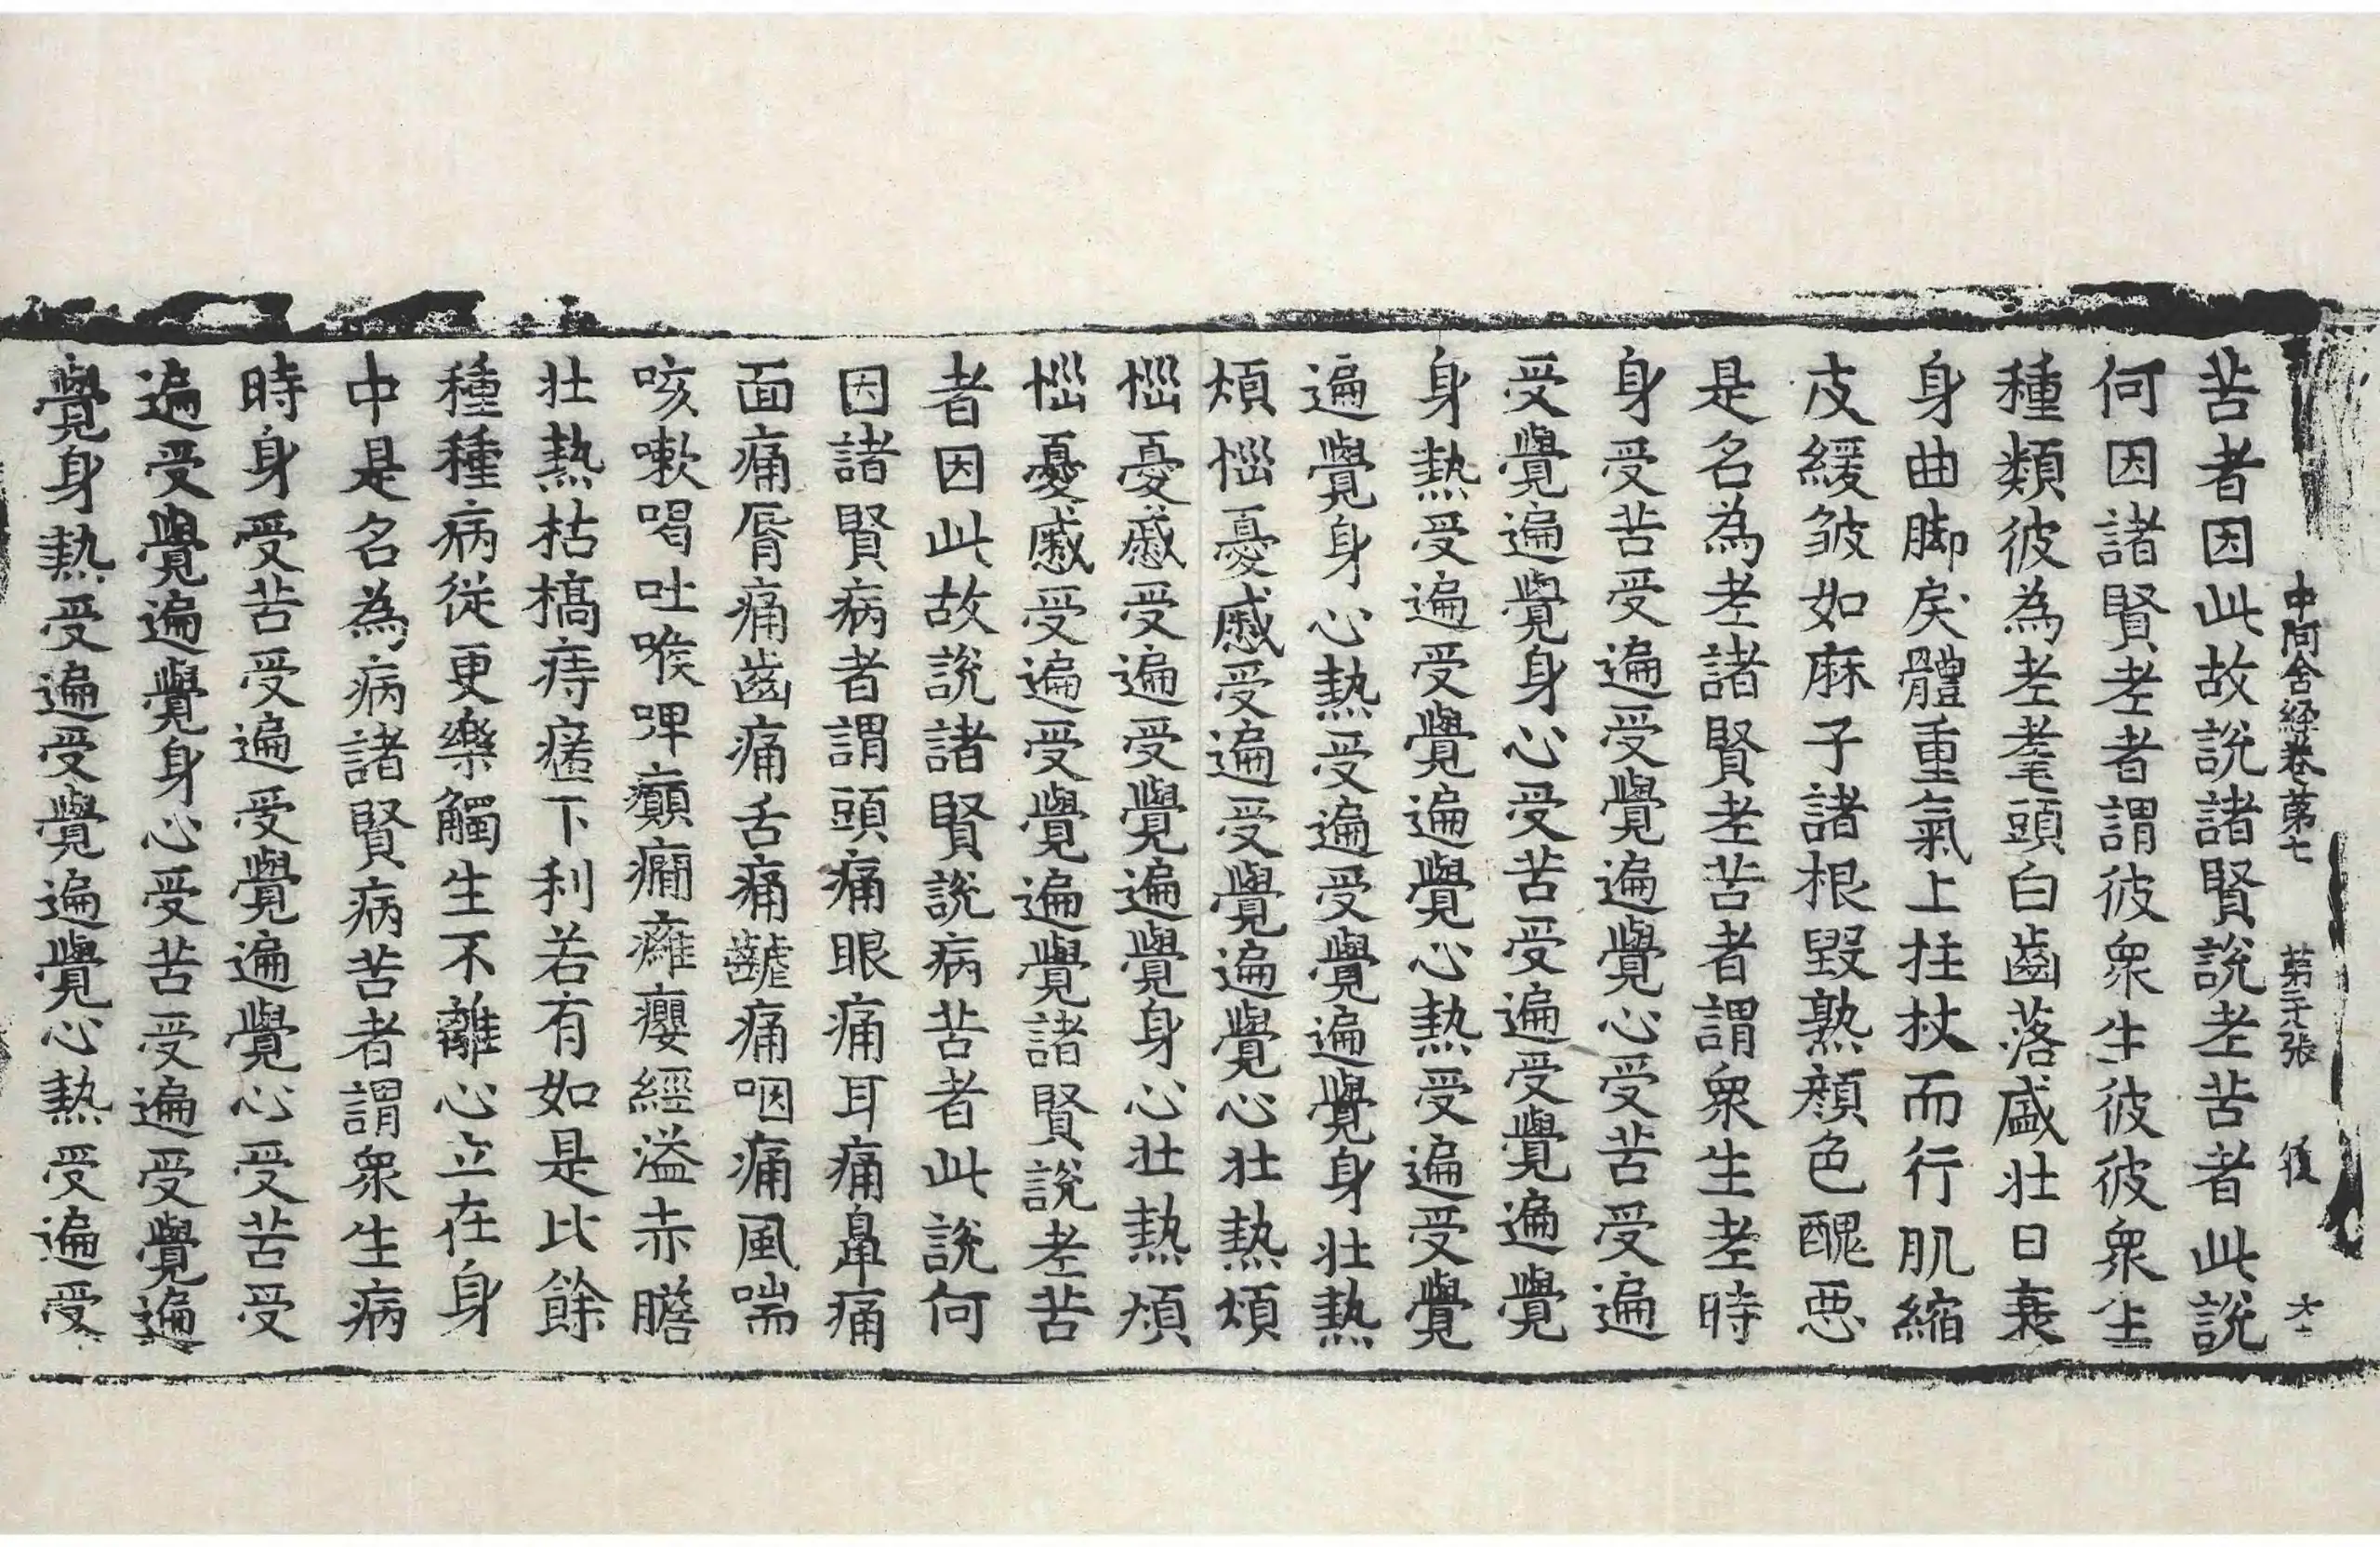 中阿含経卷第七 第二十八張 後 六一
苦者因此故說諸賢說老苦者此說
何因諸賢老者謂彼衆生彼彼衆生
種類彼為老耄頭白齒落盛壯日衰
身曲脚戾體重氣上拄杖而行肌縮
皮緩皱如麻子諸根毀熟顏色醜惡
是名為老諸賢老苦者謂衆生老時
身受苦受遍受覺遍覺心受苦受遍
受覺遍覺身心受苦受遍受覺遍覺
身熱受遍受覺遍覺心熱受遍受覺
遍覺身心熱受遍受覺遍覺身壯熱
煩惱憂慼受遍受覺遍覺心壯熱煩
惱憂慼受遍受覺遍覺身心壯熱煩
惱憂慼受遍受覺遍覺諸賢說老苦
者因此故說諸賢說病苦者此說何
因諸賢病者謂頭痛眼痛耳痛鼻痛
面痛脣痛齒痛舌痛齶痛咽痛風喘
咳嗽喝吐喉啤癲癇癰癭經溢赤瞻
壯熱枯槁痔𤻀下利若有如是比餘
種種病從更樂觸生不離心立在身
中是名為病諸賢病苦者謂衆生病
時身受苦受遍受覺遍覺心受苦受
遍受覺遍覺身心受苦受遍受覺遍
覺身熱受遍受覺遍覺心熱受遍受